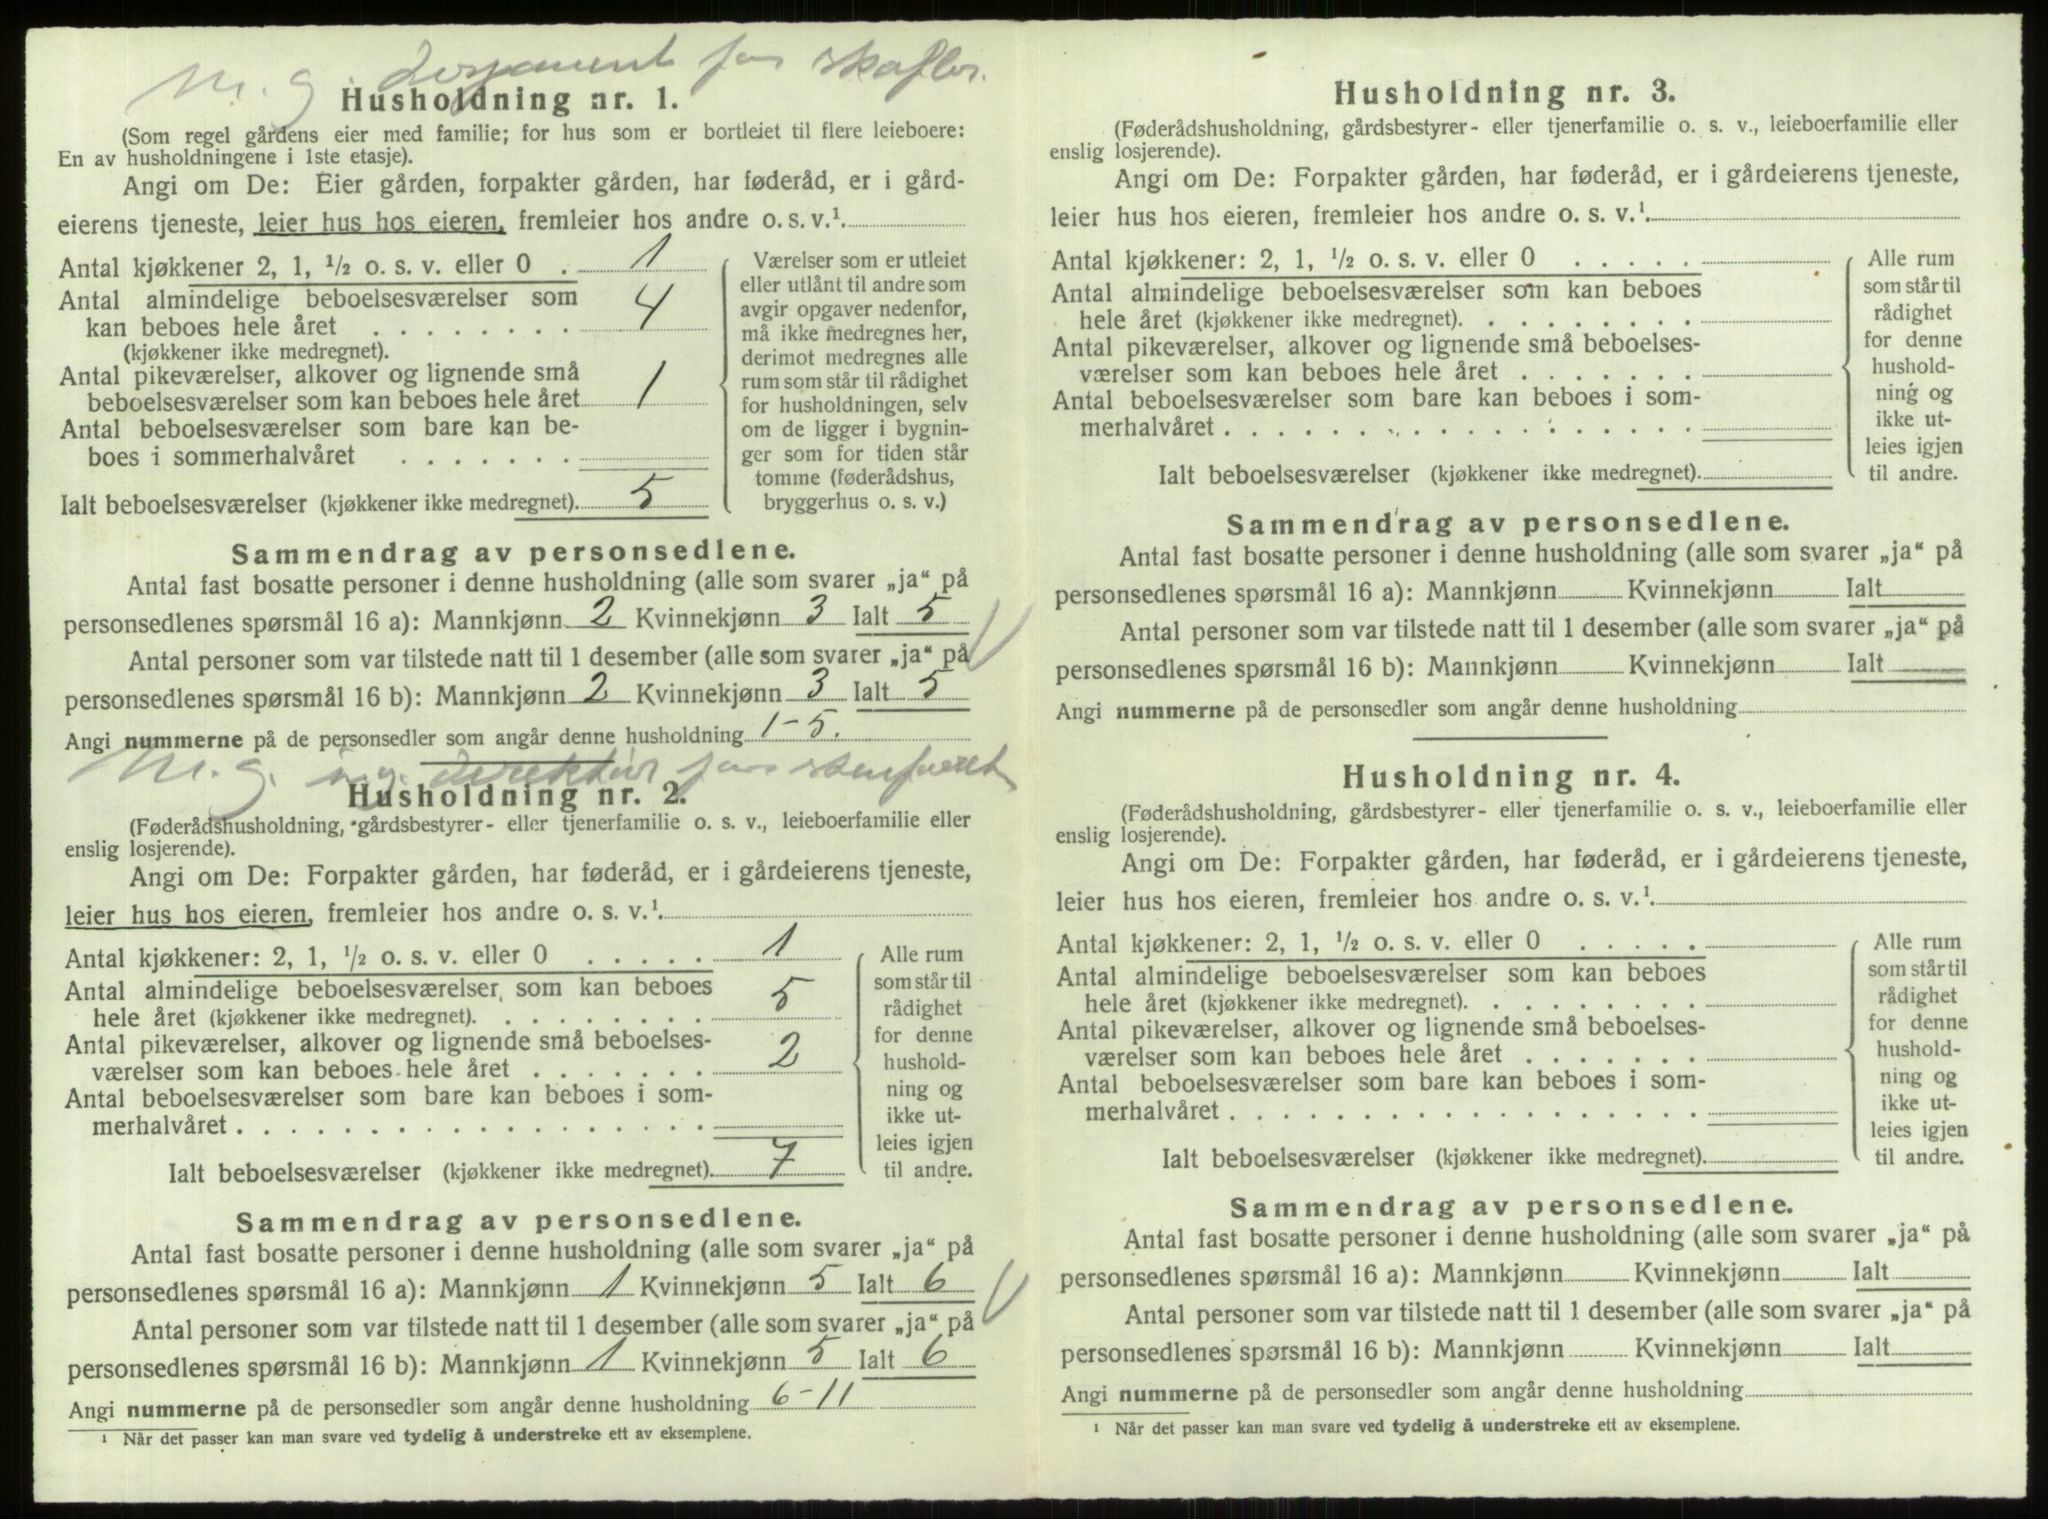 m. g.
Husholdning nr. 1.
(Som regel gårdens eier med familie; for hus som er bortleiet til flere leieboere:
En av husholdningene i 1ste etasje).
Angi om De: Eier gården, forpakter gården, har føderåd, er i gård-
eierens tjeneste, leier hus hos eieren, fremleier hos andre o. s. v.¹.
Antal kjøkkener 2, 1, ½ o. s. v. eller 0 . 1
Antal almindelige beboelsesværelser som
kan beboes hele året . . . . . . . . 4
(kjøkkener ikke medregnet).
Antal pikeværelser, alkover og lignende små
beboelsesværelser som kan beboes hele året 1
Antal beboelsesværelser som bare kan be-
boes i sommerhalvåret . . . . . . .
Ialt beboelsesværelser (kjøkkener ikke medregnet). 5
Værelser som er utleiet
eller utlånt til andre som
avgir opgaver nedenfor,
må ikke medregnes her,
derimot medregnes alle
rum som står til rådighet
for husholdningen, selv
om de ligger i bygnin-
ger som for tiden står
tomme (føderådshus,
bryggerhus o. s. v.)
Sammendrag av personsedlene.
Antal fast bosatte personer i denne husholdning (alle som svarer „ja“ på
personsedlenes spørsmål 16 a): Mannkjønn 2 Kvinnekjønn 3 Ialt 5
Antal personer som var tilstede natt til 1 desember (alle som svarer „ja“ på
personsedlenes spørsmål 16 b): Mannkjønn 2 Kvinnekjønn 3 Ialt 5
Angi nummerne på de personsedler som angår denne husholdning 1-5.
M. g. direktør
Husholdning nr. 2.
(Føderådshusholdning, gårdsbestyrer- eller tjenerfamilie o. s. v., leieboerfamilie eller
enslig losjerende).
Angi om De: Forpakter gården, har føderåd, er i gårdeierens tjeneste,
leier hus hos eieren, fremleier hos andre o. s. v.¹.
Antal kjøkkener: 2, 1, ½ o. s. v. eller 0 . . . . . 1
Antal almindelige beboelsesværelser som kan beboes
hele året (kjøkkener ikke medregnet). . . . . . . . . 5
Antal pikeværelser, alkover og lignende små beboelses-
værelser som kan beboes hele året . . . . . . . 2
Antal beboelsesværelser som bare kan beboes i som-
merhalvåret . . . . . . . . . . . . . . . . . .
Ialt beboelsesværelser (kjøkkener ikke medregnet). 7
Alle rum
som står til
rådighet
for denne
hushold-
ning og
ikke ut-
leies igjen
til andre.
Sammendrag av personsedlene.
Antal fast bosatte personer i denne husholdning (alle som svarer „ja“ på
personsedlenes spørsmål 16 a): Mannkjønn 1 Kvinnekjønn 5 Ialt 6
Antal personer som var tilstede natt til 1 desember (alle som svarer „ja“ på
personsedlenes spørsmål 16 b): Mannkjønn 1 Kvinnekjønn 5 Ialt 6
Angi nummerne på de personsedler som angår denne husholdning 6-11
¹ Når det passer kan man svare ved tydelig å understreke ett av eksemplene.
Husholdning nr. 3.
(Føderådshusholdning, gårdsbestyrer- eller tjenerfamilie o. s. v., leieboerfamilie eller
enslig losjerende).
Angi om De: Forpakter gården, har føderåd, er i gårdeierens tjeneste,
leier hus hos eieren, fremleier hos andre o. s. v.¹.
Antal kjøkkener: 2, 1, ½ o. s. v. eller 0 . . . . .
Antal almindelige beboelsesværelser som kan beboes
hele året (kjøkkener ikke medregnet). . . . . . . . .
Antal pikeværelser, alkover og lignende små beboelses-
værelser som kan beboes hele året . . . . . . .
Antal beboelsesværelser som bare kan beboes i som-
merhalvåret . . . . . . . . . . . . . . . . . .
Ialt beboelsesværelser (kjøkkener ikke medregnet).
Alle rum
som står til
rådighet
for denne
hushold-
ning og
ikke ut-
leies igjen
til andre.
Sammendrag av personsedlene.
Antal fast bosatte personer i denne husholdning (alle som svarer „ja“ på
personsedlenes spørsmål 16 a): Mannkjønn Kvinnekjønn Ialt
Antal personer som var tilstede natt til 1 desember (alle som svarer „ja“ på
personsedlenes spørsmål 16 b): Mannkjønn Kvinnekjønn Ialt
Angi nummerne på de personsedler som angår denne husholdning
Husholdning nr. 4.
(Føderådshusholdning, gårdsbestyrer- eller tjenerfamilie o. s. v., leieboerfamilie eller
enslig losjerende).
Angi om De: Forpakter gården, har føderåd, er i gårdeierens tjeneste,
leier hus hos eieren, fremleier hos andre o. s. v.¹.
Antal kjøkkener: 2, 1, ½ o. s. v. eller 0 . . . . .
Antal almindelige beboelsesværelser som kan beboes
hele året (kjøkkener ikke medregnet). . . . . . . . .
Antal pikeværelser, alkover og lignende små beboelses-
værelser som kan beboes hele året . . . . . . .
Antal beboelsesværelser som bare kan beboes i som-
merhalvåret . . . . . . . . . . . . . . . . . .
Ialt beboelsesværelser (kjøkkener ikke medregnet).
Alle rum
som står til
rådighet
for denne
hushold-
ning og
ikke ut-
leies igjen
til andre.
Sammendrag av personsedlene.
Antal fast bosatte personer i denne husholdning (alle som svarer „ja“ på
personsedlenes spørsmål 16 a): Mannkjønn Kvinnekjønn Ialt
Antal personer som var tilstede natt til 1 desember (alle som svarer „ja“ på
personsedlenes spørsmål 16 b): Mannkjønn Kvinnekjønn Ialt
Angi nummerne på de personsedler som angår denne husholdning
¹ Når det passer kan man svare ved tydelig å understreke ett av eksemplene.